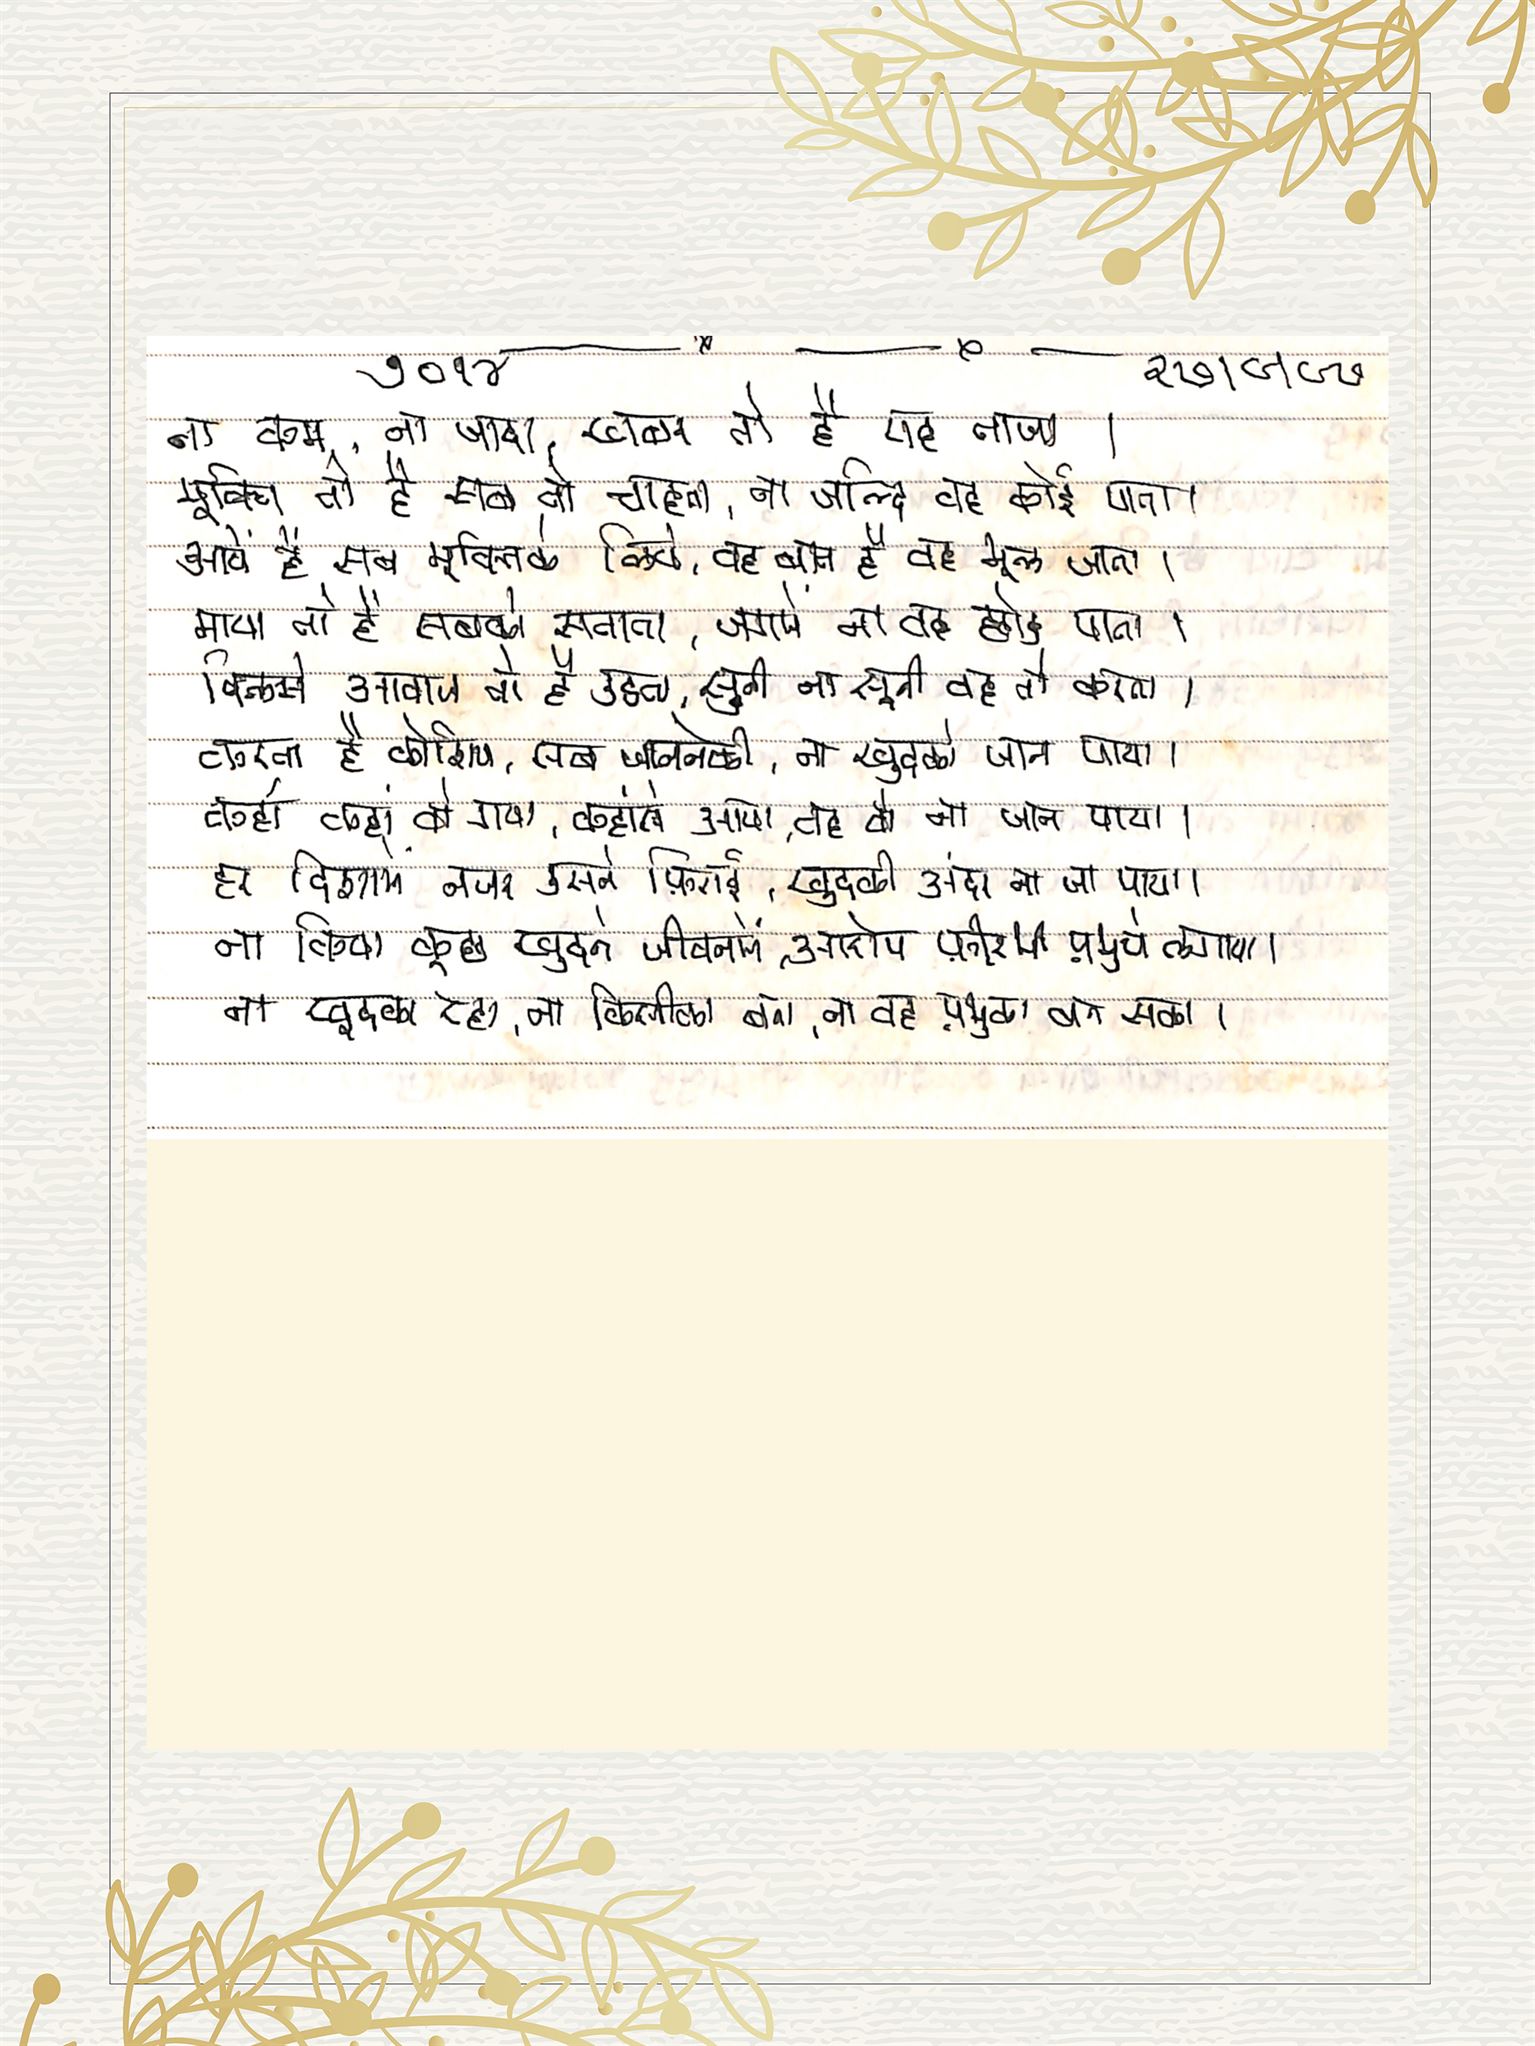 ७०१४ २७।८।८७
ना कम, ना जादा, खबर तो है यह ताजा ।
मूक्ति तो है सब तो चाहता, ना जल्दि वह कोई पाता ।
आये हैं सब मूक्तिके लिये, वह बात है वह भूल जाता ।
माया तो है सबको सताता, जगमें ना वह छोड पाता ।
दिलसे आवाज तो है उठता, सुनी ना सूनी वह तो करता ।
करता है कोशिष, सब जाननेकी, ना खुदको जान पाया ।
कहाँ कहां वो गया, कहांसे आया, वह तो ना जान पाया ।
हर दिशामें नजर उसने फ़िराई, खुदकी अंदर ना जा पाया ।
ना किया कूछ खुदने जीवनमें, आरोप फ़ीरभी प्रभुपे लगाया ।
ना खूदका रहा, ना किसीका बना, ना वह प्रभुका बन सका ।